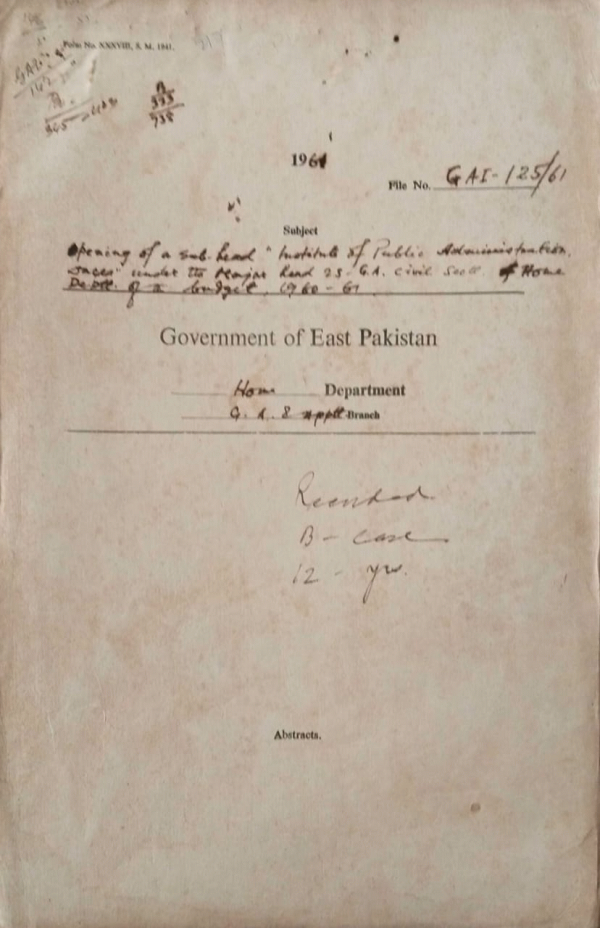 Police No. XXXVIII, S. M. 1941.
GAI
162
B.
345
B
335
738
1961
File No. GAI-125/61
Subject
Opening of a sub-head "Institute of Public Administration,
Dacca" under the Major head 25-G.A. Civil Sectt. of Home
Deptt. budget, 1960-61
Government of East Pakistan
Home Department
G. A. & Apptt. Branch
Recorded
B - case
12 - yrs.
Abstracts.